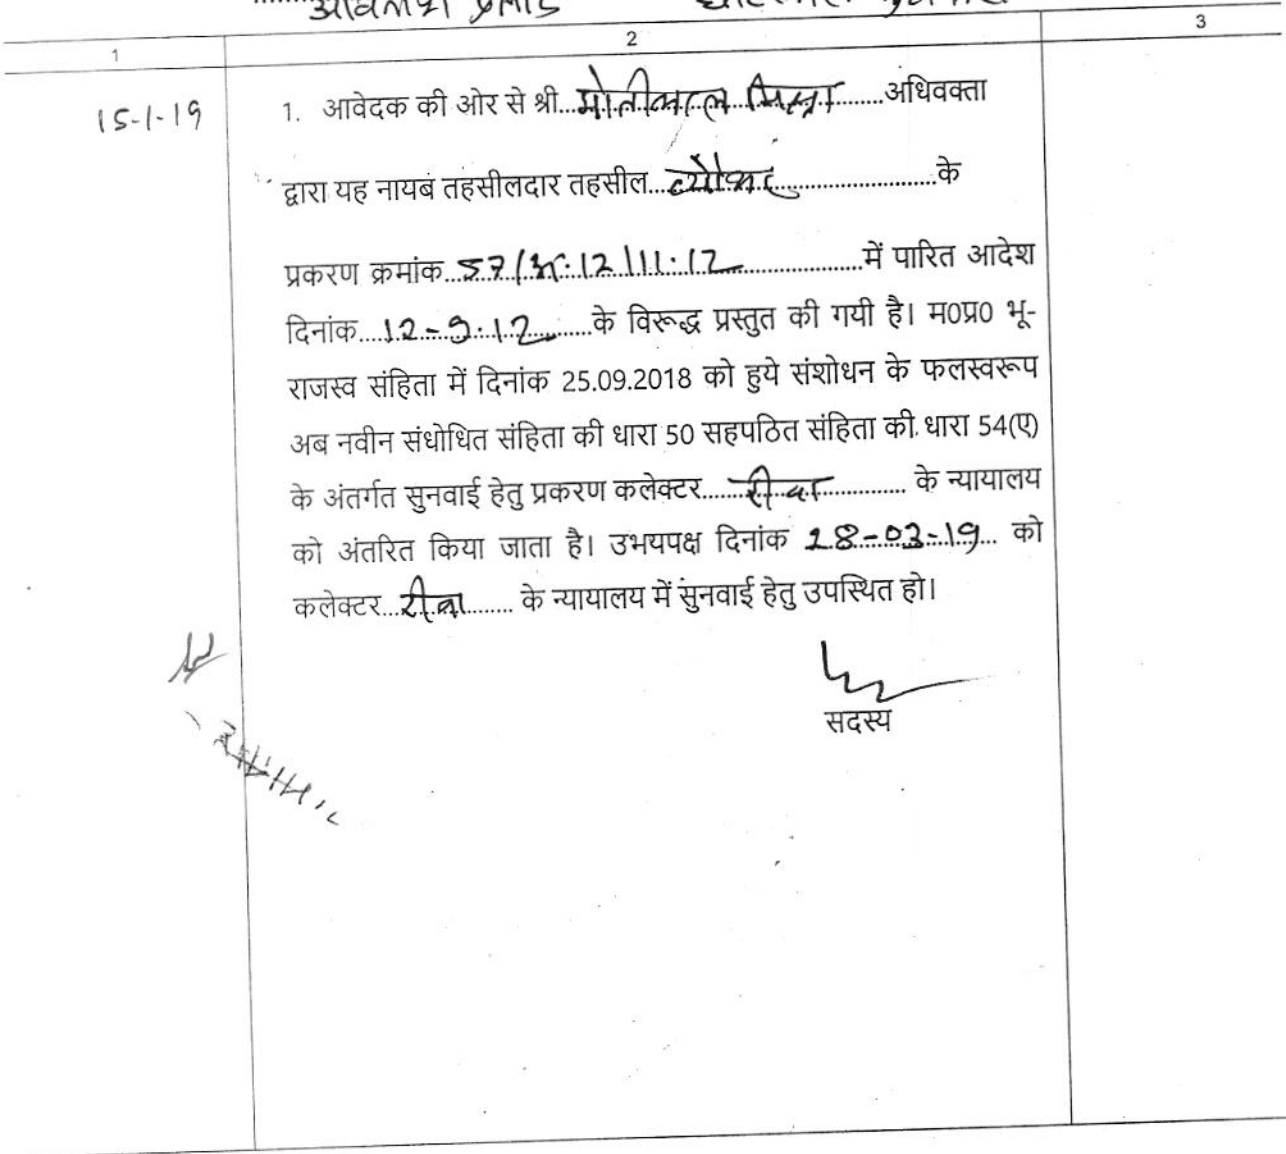 अविनाश प्रसाद
1 2 3
15-1-19
1. आवेदक की ओर से श्री...मोतीलाल मिश्रा........अधिवक्ता
द्वारा यह नायब तहसीलदार तहसील...त्योंथर..............................के
प्रकरण क्रमांक...57/अ.12/11.12......................में पारित आदेश
दिनांक....12-9.12.........के विरूद्ध प्रस्तुत की गयी है। म0प्र0 भू-
राजस्व संहिता में दिनांक 25.09.2018 को हुये संशोधन के फलस्वरूप
अब नवीन संधोधित संहिता की धारा 50 सहपठित संहिता की धारा 54(ए)
के अंतर्गत सुनवाई हेतु प्रकरण कलेक्टर........रीवा............... के न्यायालय
को अंतरित किया जाता है। उभयपक्ष दिनांक 28-03-19... को
कलेक्टर...रीवा......... के न्यायालय में सुनवाई हेतु उपस्थित हो।
सदस्य